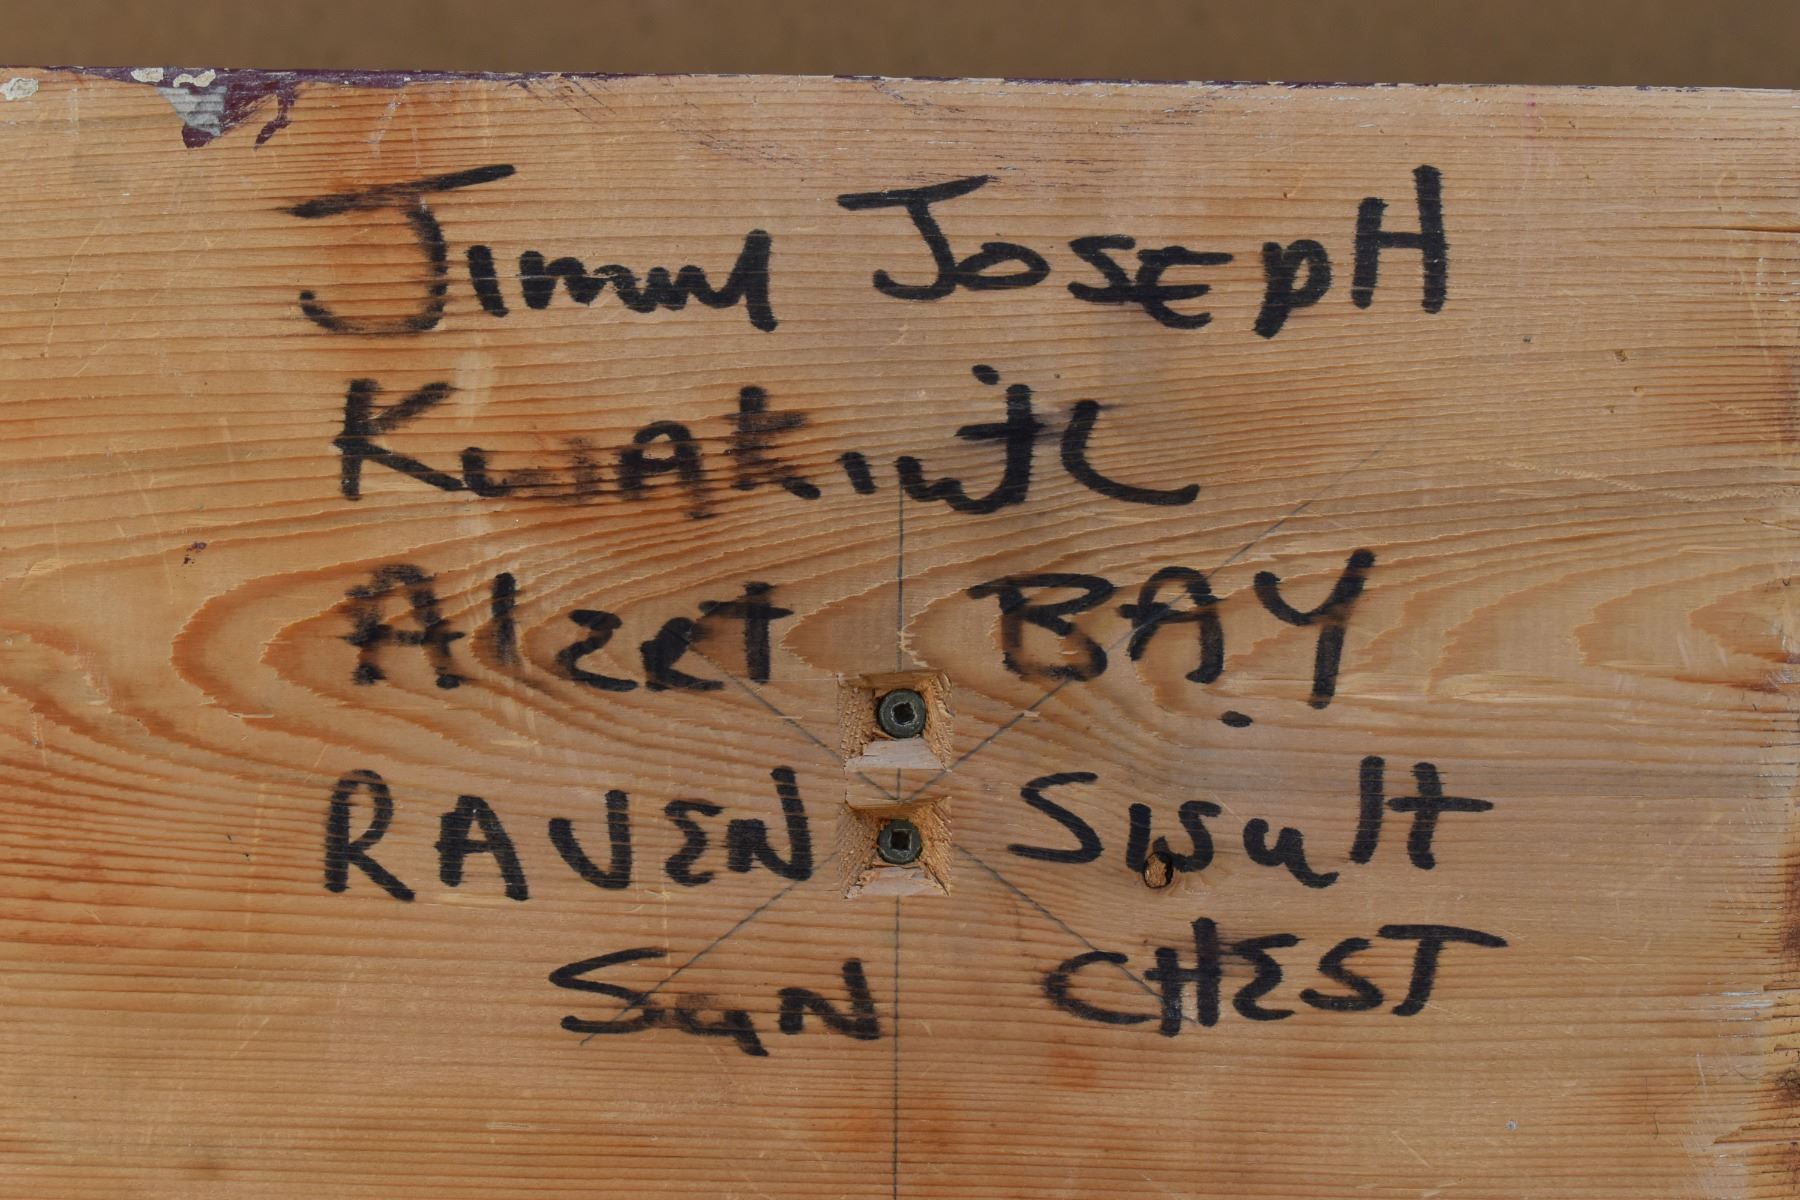 Jimmy JOSEPH
Kwakiutl
Alert BAY
RAVEN Sisult
SUN CHEST